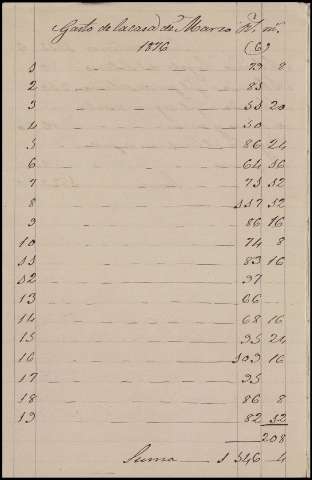 Gasto de la casa de Marzo Rs. ms.
1876 (6)
1 79 8
2 83
3 55 20
4 50
5 86 24
6 64 16
7 75 12
8 117 12
9 86 16
10 74 8
11 83 16
12 97
13 66
14 68 16
15 95 24
16 109 16
17 95
18 86 8
19 82 12
208
Suma 1546 4